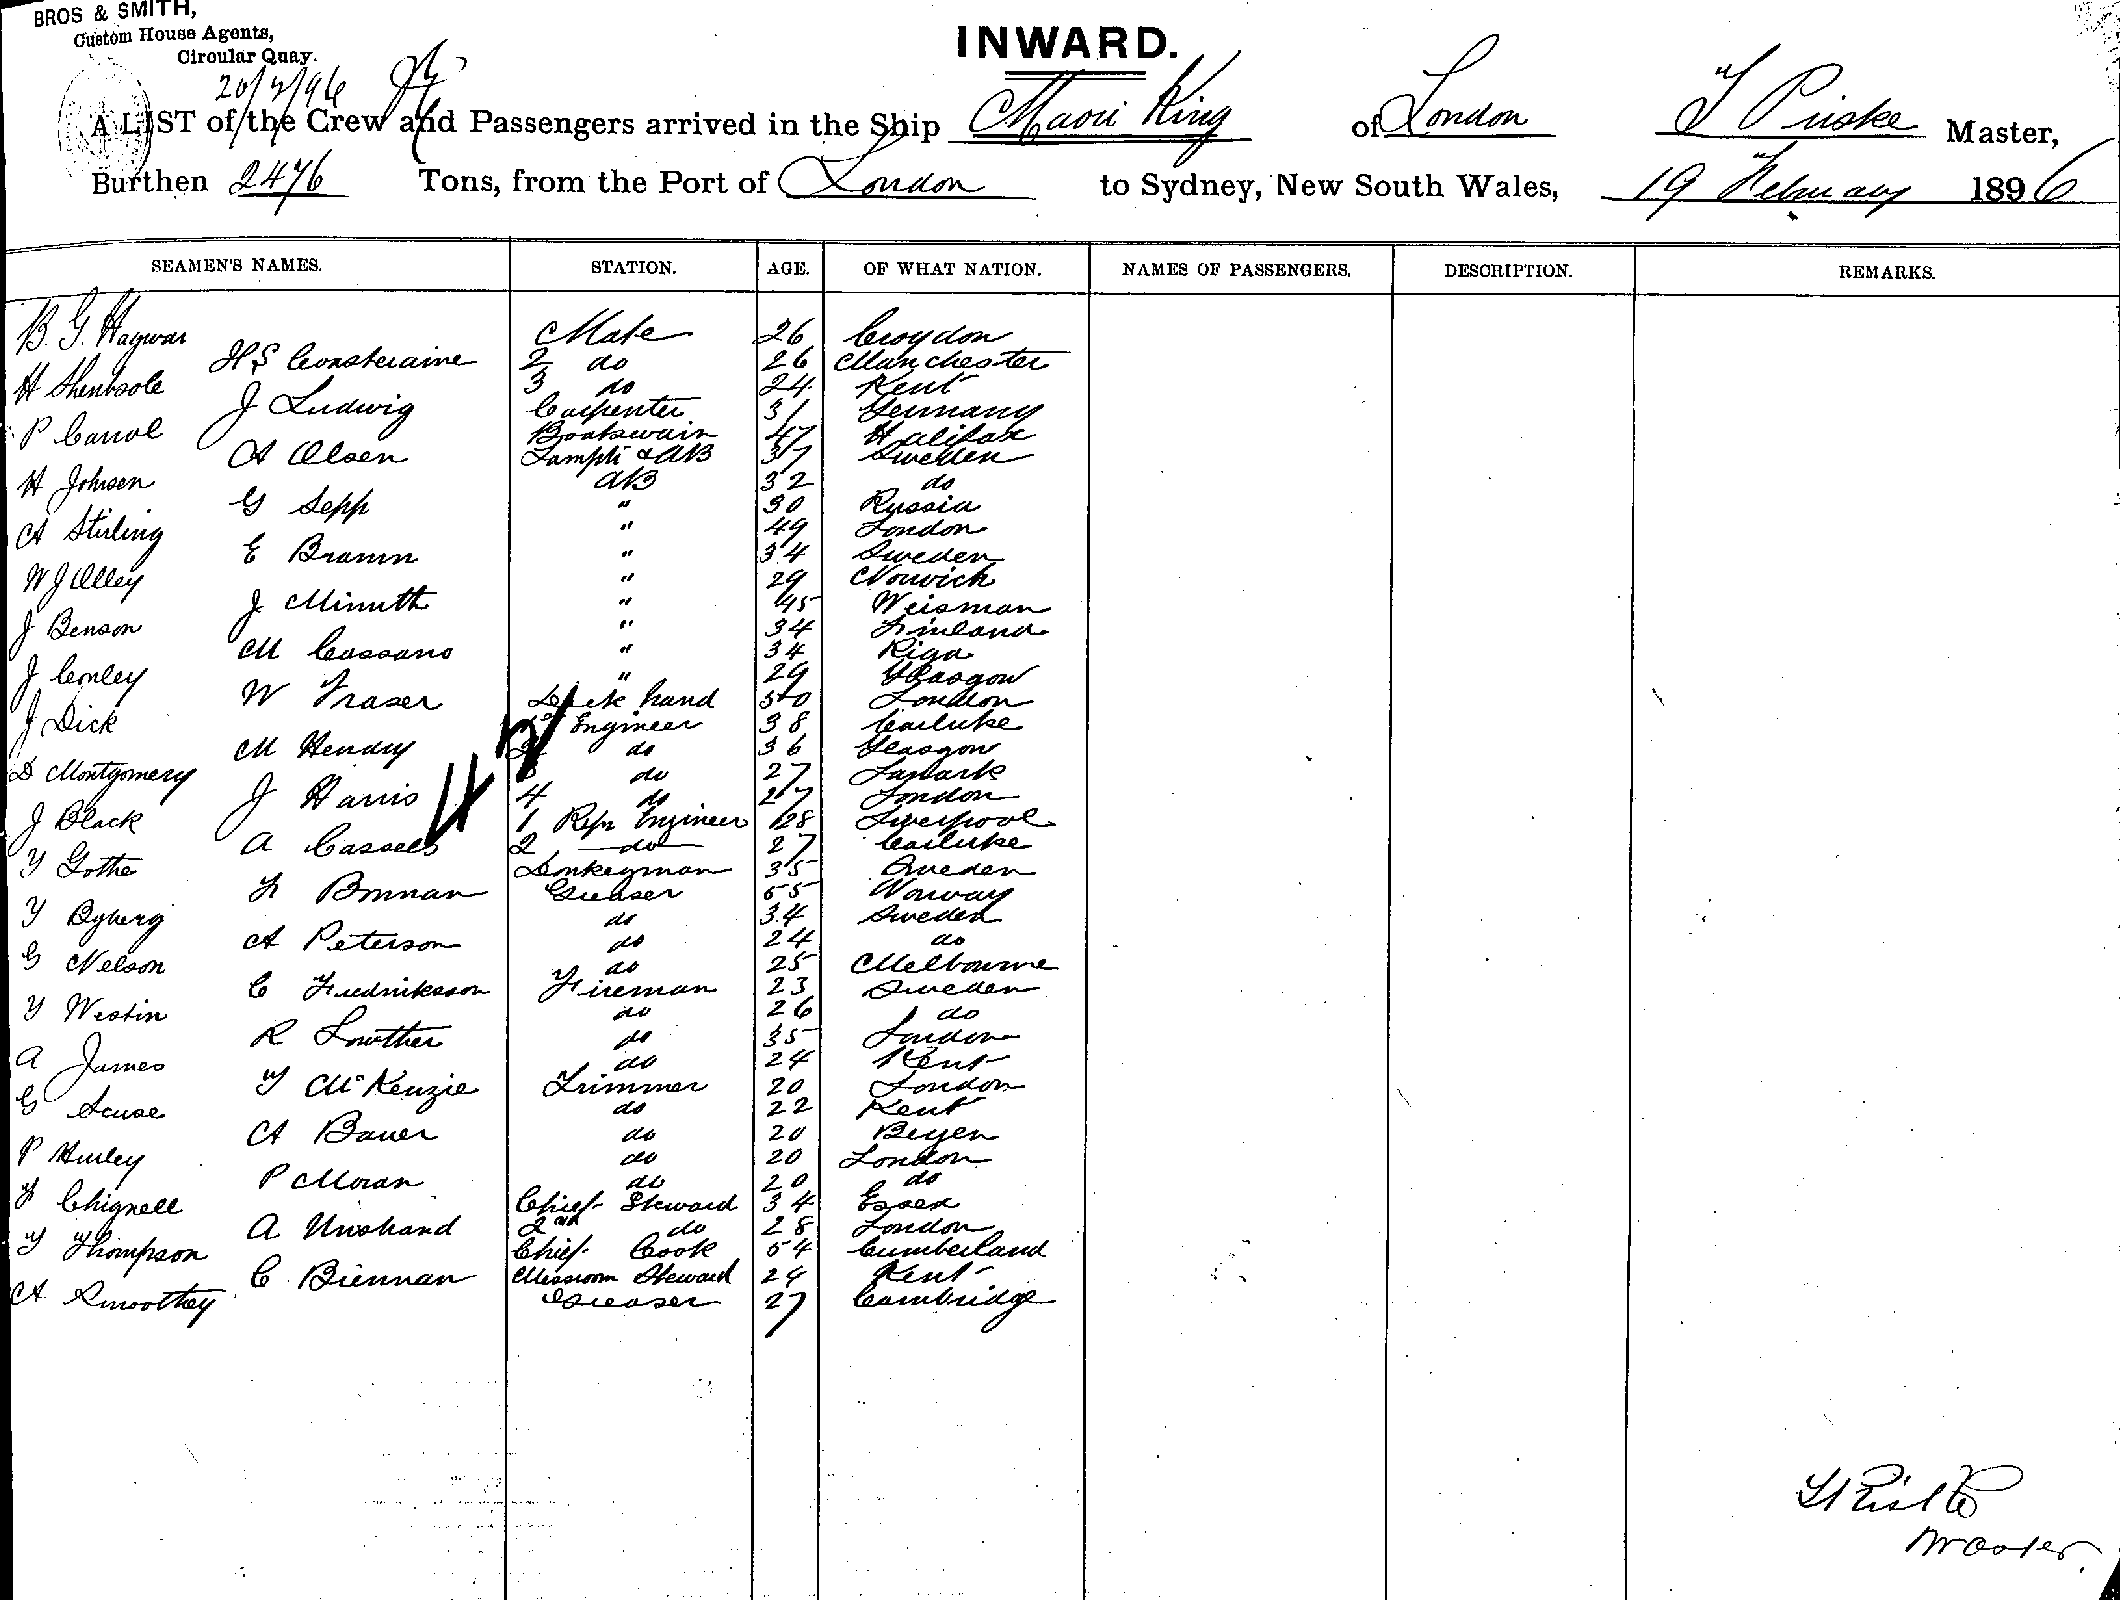 BROS & SMITH,
Custom House Agents,
Circular Quay.
20/2/96
INWARD.
A LIST of the Crew and Passengers arrived in the Ship Maori King of London Master,
Burthen 2476 Tons, from the Port of London to Sydney, New South Wales, 19 February 1896
SEAMEN'S NAMES. STATION. AGE. OF WHAT NATION. NAMES OF PASSENGERS. DESCRIPTION. REMARKS.
B. G. Haywar Mate 26 Croydon
H S Consteraine 2 do 26 Manchester
H Shenbsole 3 do 24 Kent
J Ludwig Carpenter 31 Germany
P Carrol Boatswain 47 Halifax
A Olsen Lamps & AB 37 Sweden
H Johnsen AB 32 do
G Sepp " 30 Russia
A Stirling " 49 London
E Bramn " 34 Sweden
W J Alley " 29 Norwich
J Minuth " 45 Weisman
J Benson " 34 Finland
M Cassans " 34 Riga
J Conley " 29 Glasgow
W Fraser Deck hand 50 London
J Dick Engineer 38 Carluke
M Hendry 2 do 36 Glasgow
D Montgomery 3 do 27 Lanark
J Harris 4 do 27 London
J Black 1 Refr Engineer 28 Liverpool
A Cassels 2 do 27 Carluke
Y Gothe Donkeyman 35 Sweden
F Brnnan Greaser 55 Norway
Y Byberg do 34 Sweden
A Peterson do 24 do
G Nelson do 25 Melbourne
C Fredriksson Fireman 23 Sweden
Y Westin do 26 do
R Lowther do 35 London
A James do 24 Kent
Y McKenzie Trimmer 20 London
G Scuse do 22 Kent
A Bauer do 20 Beyen
P Hurley do 20 London
P Moran do 20 do
F Chignell Chief Steward 34 Essex
A Unshand 2nd do 28 London
Y Thompson Chief Cook 54 Cumberland
C Biennan Messroom Steward 24 Kent
A Smoothey Greaser 27 Cambridge
Master.